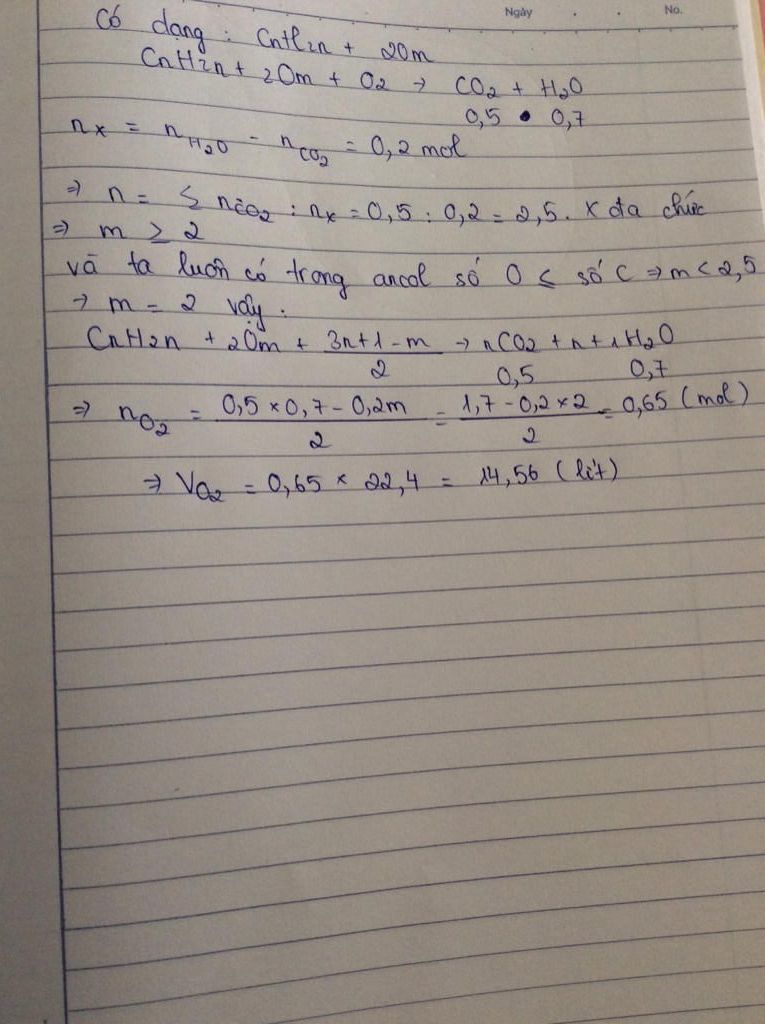 Ngày . . No.
Có dạng : CnH2n + 2Om
CnH2n + 2Om + O2 → CO2 + H2O
0,5 • 0,7
nx = nH2O - nCO2 = 0,2 mol
⇒ n = ≤ nCO2 : nx = 0,5 : 0,2 = 2,5. X đa chức
⇒ m ≥ 2
và ta luôn có trong ancol số O ≤ số C ⇒ m < 2,5
→ m = 2 vậy :
CnH2n + 2Om + (3n+1-m)/2 → nCO2 + n+1H2O
0,5 0,7
⇒ nO2 = (0,5 × 0,7 - 0,2m)/2 = (1,7 - 0,2 × 2)/2 = 0,65 (mol)
⇒ VO2 = 0,65 × 22,4 = 14,56 (lít)